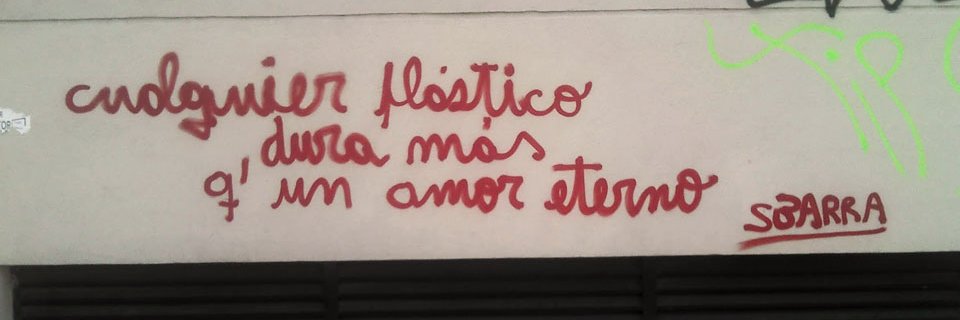 cualquier plástico
dura más
q' un amor eterno
SBARRA